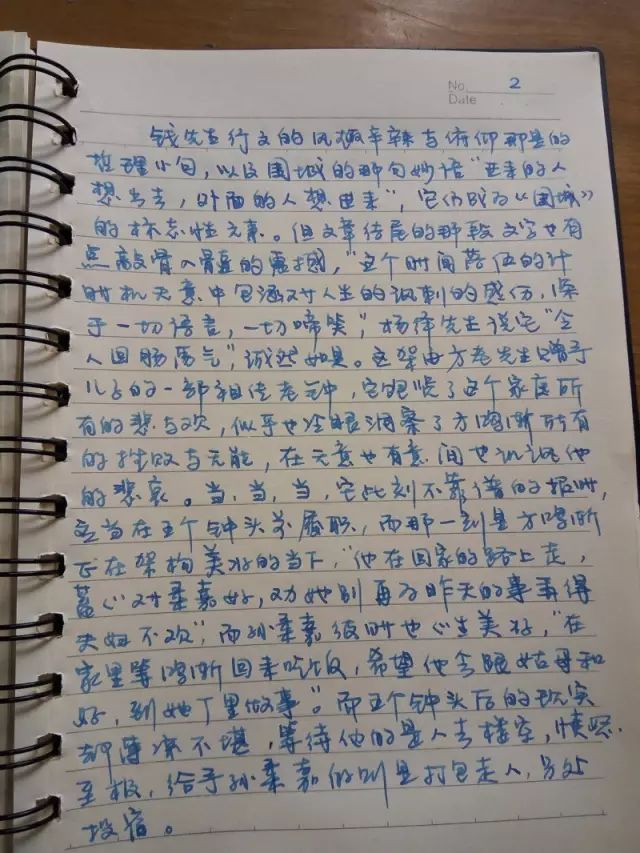 No. 2
Date
钱先生行文的风趣辛辣与俯仰那是的
哲理小句，以及围城的那句妙语“进来的人
想出去，外面的人想进来”，它们成为《围城》
的标志性元素。但文章结尾的那段文字也有
点敲骨入髓的震撼，“这个时间落伍的计
时机无意中包涵对人生的讽刺的感伤，深
于一切语言，一切啼笑”，杨绛先生说它“令
人回肠荡气”，诚然如是。这架由方老先生赠予
儿子的一部祖传老钟，它饱览了这个家庭所
有的悲与欢，似乎也冷眼洞察了方鸿渐所有
的挫败与无能，在无意也有意间也讥讽他
的悲哀。当，当，当，它此刻不靠谱的报时，
应当在五个钟头前履职，而那一刻是方鸿渐
正在架构美好的当下，“他在回家的路上走，
蓄心对柔嘉好，劝她别再为昨天的事弄得
夫妇不欢”，而孙柔嘉彼时也心生美好，“在
家里等鸿渐回来吃饭，希望他会跟姑母和
好，到她厂里做事”。而五个钟头后的现实
却薄凉不堪，等待他的是人去楼空，愤怒
至极，给予孙柔嘉的则是打包走人，另处
投宿。